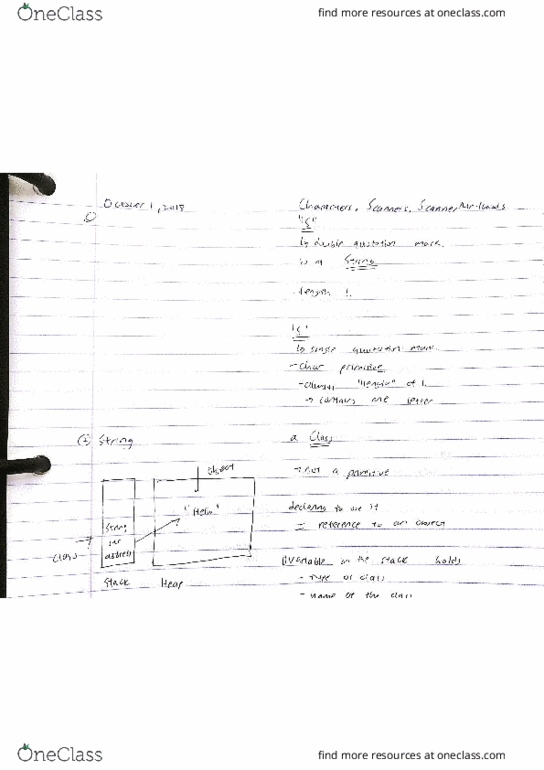 OneClass
find more resources at oneclass.com
October 1, 2018
Characters, Scanners, Scanner
"S"
↳ double quotation mark
is a String
length 1.
's'
↳ single quotation mark
- char primitive
- always "length" of 1.
→ contains one letter
① String
a Class
object
→ not a primitive
"Hello"
declaring to use it
String
= reference to an object
class →
str
address
variable on the stack holds
Stack
Heap
- type of class
- name of the class
OneClass
find more resources at oneclass.com